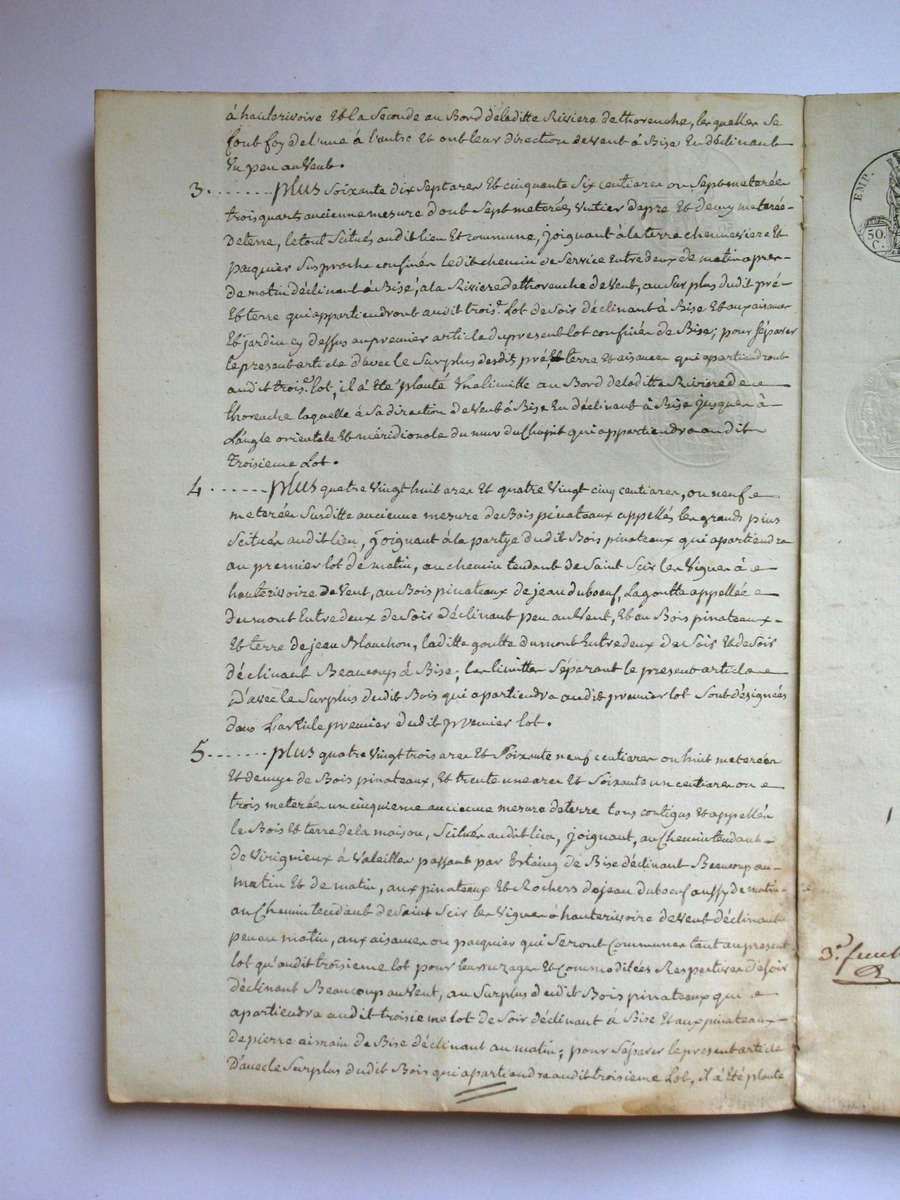 à hauterivoire Et la Seconde au Bord deladitte Riviere de thorenche, lesquelles se
font foy de l'une à l'autre Et ont leur direction de Vent à Bise En déclinant
Un peu au Vent.
3. ....... plus Soixante dix Sept ares Et cinquante Six centiares ou Sept meterées
trois quarts ancienne mesure dont Sept meterées Entier de pré Et demy meterée
De terre, le tout Scitués audit lieu Et commune, joignant à la terre chenneviere Et
pasquier Susproche confinée ledit chemin de Service Entre deux de matin après
de matin déclinant à Bise, à la Riviere de thorenche de Vent, au Surplus dudit pré
Et terre qui appartiendront audit trois.e Lot de Soir déclinant à Bise Et aux aisances
Et jardin cy dessus au premier article du present lot confinée de Bise; pour Séparer
le present article d'avec le Surplus desdits pré, Et terre Et aisances qui apartiendront
audit trois.e lot, il à été planté Une limitte au Bord deladitte Riviere de
thorenche laquelle à Sa direction de Vent à Bise En déclinant à Bise jusques à
L'angle orientale Et méridionale du mur du qui appartiendra audit
Troisieme Lot.
4. ...... plus quatre Vingt huit ares Et quatre Vingt cinq centiares, ou neuf
meterées Susditte ancienne mesure de Bois pinateaux appellés les grands pins
Scituées audit lieu, joignant à la partye dudit Bois pinateaux qui apartiendra
au premier lot de matin, au chemin tendant de Saint Scir les Vignes à
hauterivoire de Vent, au Bois pinateaux de jean duboeuf, La goutte appellée
du mont Entre deux de Soir déclinant peu au Vent, Et au Bois pinateaux
Et terre de jean Blanchon, laditte goutte du mont Entre deux de Soir Et de Soir
déclinant Beaucoup à Bise; les limittes Séparant le present article
D'avec le Surplus dudit Bois qui apartiendra audit premier lot Sont désignées
dans L'article premier dudit premier lot.
5. ...... plus quatre Vingt trois ares Et Soixante neuf centiares ou huit meterées
Et demye de Bois pinateaux, Et trente une ares Et Soixante un centiares ou
trois meterées un cinquieme ancienne mesure de terre tous contigus Et appellés
le Bois Et terre de la maison, Scitués audit lieu, joignant, au Chemin tendant
de Virignieux à Valeilles passant par Estaing de Bise déclinant Beaucoup au
matin Et de matin, aux pinateaux Et Rochers de jean duboeuf aussy de matin
au Chemin tendant de Saint Scir les Vignes à hauterivoire de Vent déclinant
peu au matin, aux aisances ou pasquier qui Seront Communes tant au present
lot qu'audit troisieme lot pour leurs uzages Et Commoditées Respectives de Soir
déclinant Beaucoup au Vent, au Surplus dudit Bois pinateaux qui
apartiendra audit troisieme lot de Soir déclinant à Bise Et aux pinateaux
de pierre de Bise déclinant au matin; pour Séparer le present article
D'avec le Surplus dudit Bois qui apartiendra audit troisieme Lot, il à Eté planté
EMP.
50.
C.